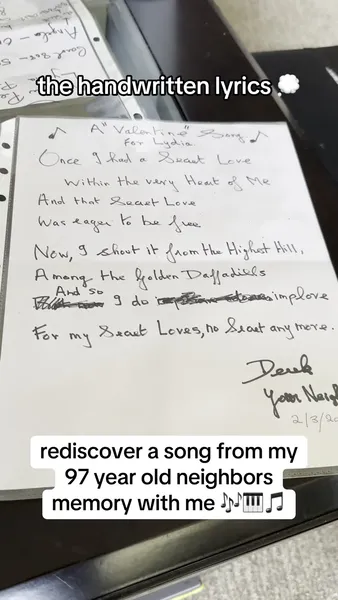 the handwritten lyrics 💭
A "Valentine" Song
For Lydia
Once I had a Secret Love
Within the very Heart of Me
And that Secret Love
Was eager to be free
Now, I shout it from the Highest Hill,
Among the Golden Daffadills
And so I do implove
For my Secret Loves, no Secret any more.
Derek
Your Neigh
2/3/20
rediscover a song from my
97 year old neighbors
memory with me 🎶🎹🎵